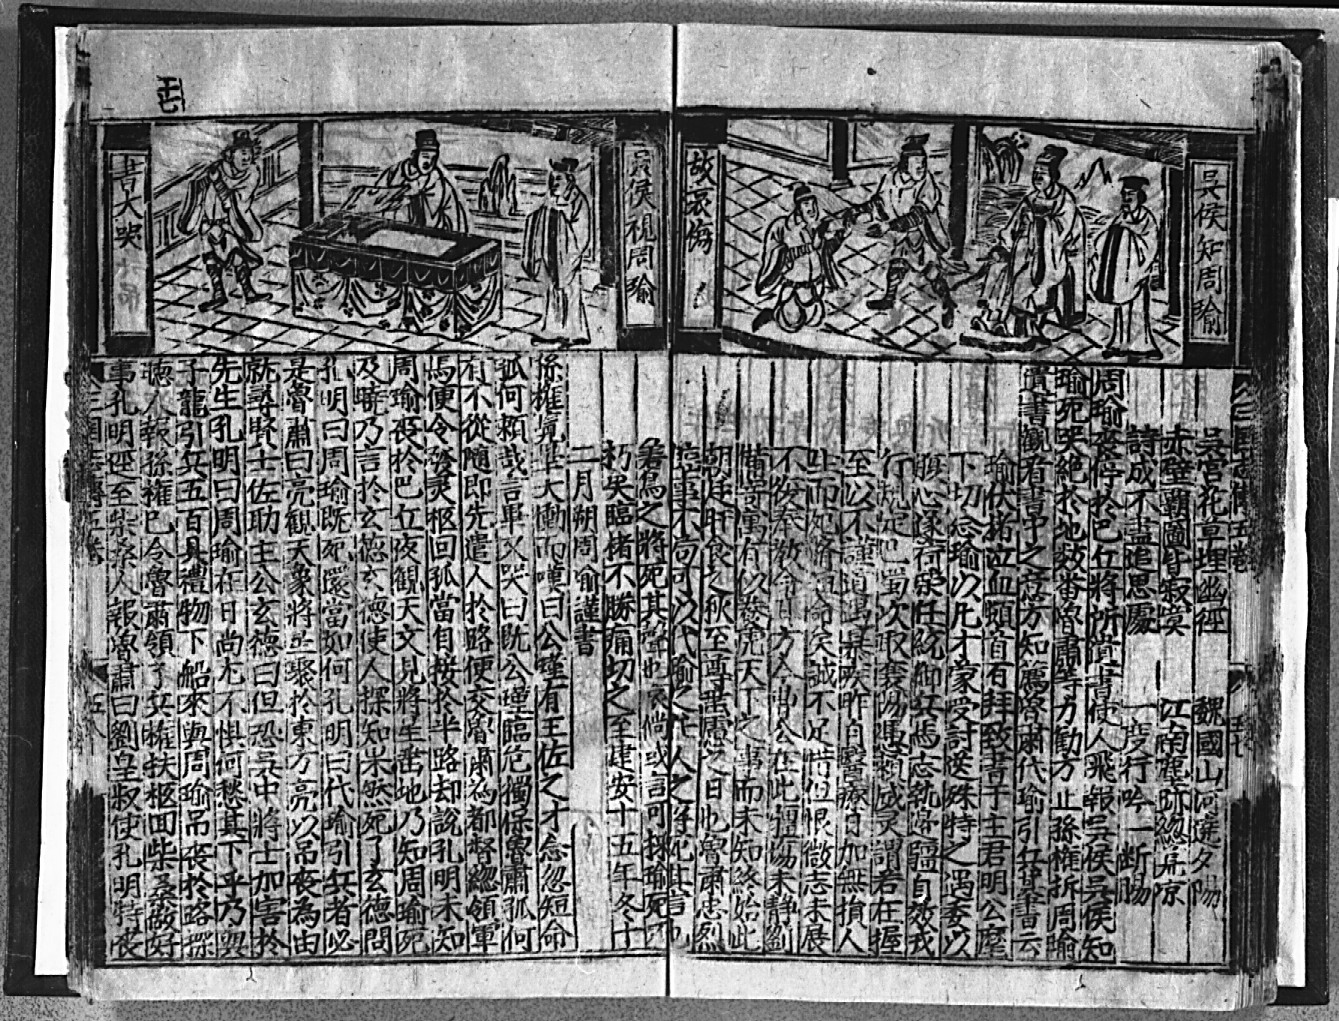 吳侯知周瑜
故哀傷
吳宮花草埋幽徑　魏國山河送夕陽
赤壁霸圖皆寂寞　江南麗跡總荒涼
詩成不盡追思處　一度行吟一斷腸
周瑜喪停於巴丘將所遺書使人飛報吳侯吳侯知
瑜死哭絕於地數番魯肅等力勸方止孫權折周瑜
遺書觀看書中之意方知薦魯肅代瑜引兵其書云
瑜伏楮泣血頓首百拜致書于主君明公麾
下切念瑜以凡才蒙受討逆殊特之遇委以
腹心遂荷榮任統御兵馬志執鞭韁自效戎
行規定巴蜀次取襄陽憑賴威灵謂若在握
至以不謹道遇暴疾昨自醫療日加無損人
生而死脩短命矣誠不足惜但恨微志未展
不復奉教命耳方今曹公在此疆場未靜劉
備寄寓有似養虎天下之事而未知終始此
朝廷旰食之秋至尊垂慮之日也魯肅忠烈
臨事不苟可以代瑜之任人之將死其言也
善鳥之將死其聲也哀倘或言可採瑜死不
朽矣臨楮不勝痛切之至建安十五年冬十
二月朔周瑜謹書
吳侯視周瑜
書大哭
孫權覽畢大慟而嘆曰公瑾有王佐之才今忽短命
孤何賴哉言畢又哭曰既公瑾臨危獨保魯肅孤何
有不從隨即先遣人於路便交魯肅為都督總領軍
馬便令發灵柩回孤當自接於半路却說孔明未知
周瑜喪於巴丘夜觀天文見將星墜地乃知周瑜死
及曉乃言於玄德玄德使人探知果然死了玄德問
孔明曰周瑜既死還當如何孔明曰代瑜引兵者必
是魯肅曰亮觀天象將星聚於東方亮以吊喪為由
就尋賢士佐助主公玄德曰但恐吳中將士加害於
先生孔明曰周瑜在日尚尤不惧何愁其下乎乃與
子龍引兵五百具禮物下船來與周瑜吊喪於路探
聽人報孫權已令魯肅領了兵權扶柩回柴桑敬好
事孔明逕至柴桑人報魯肅曰劉皇叔使孔明特喪